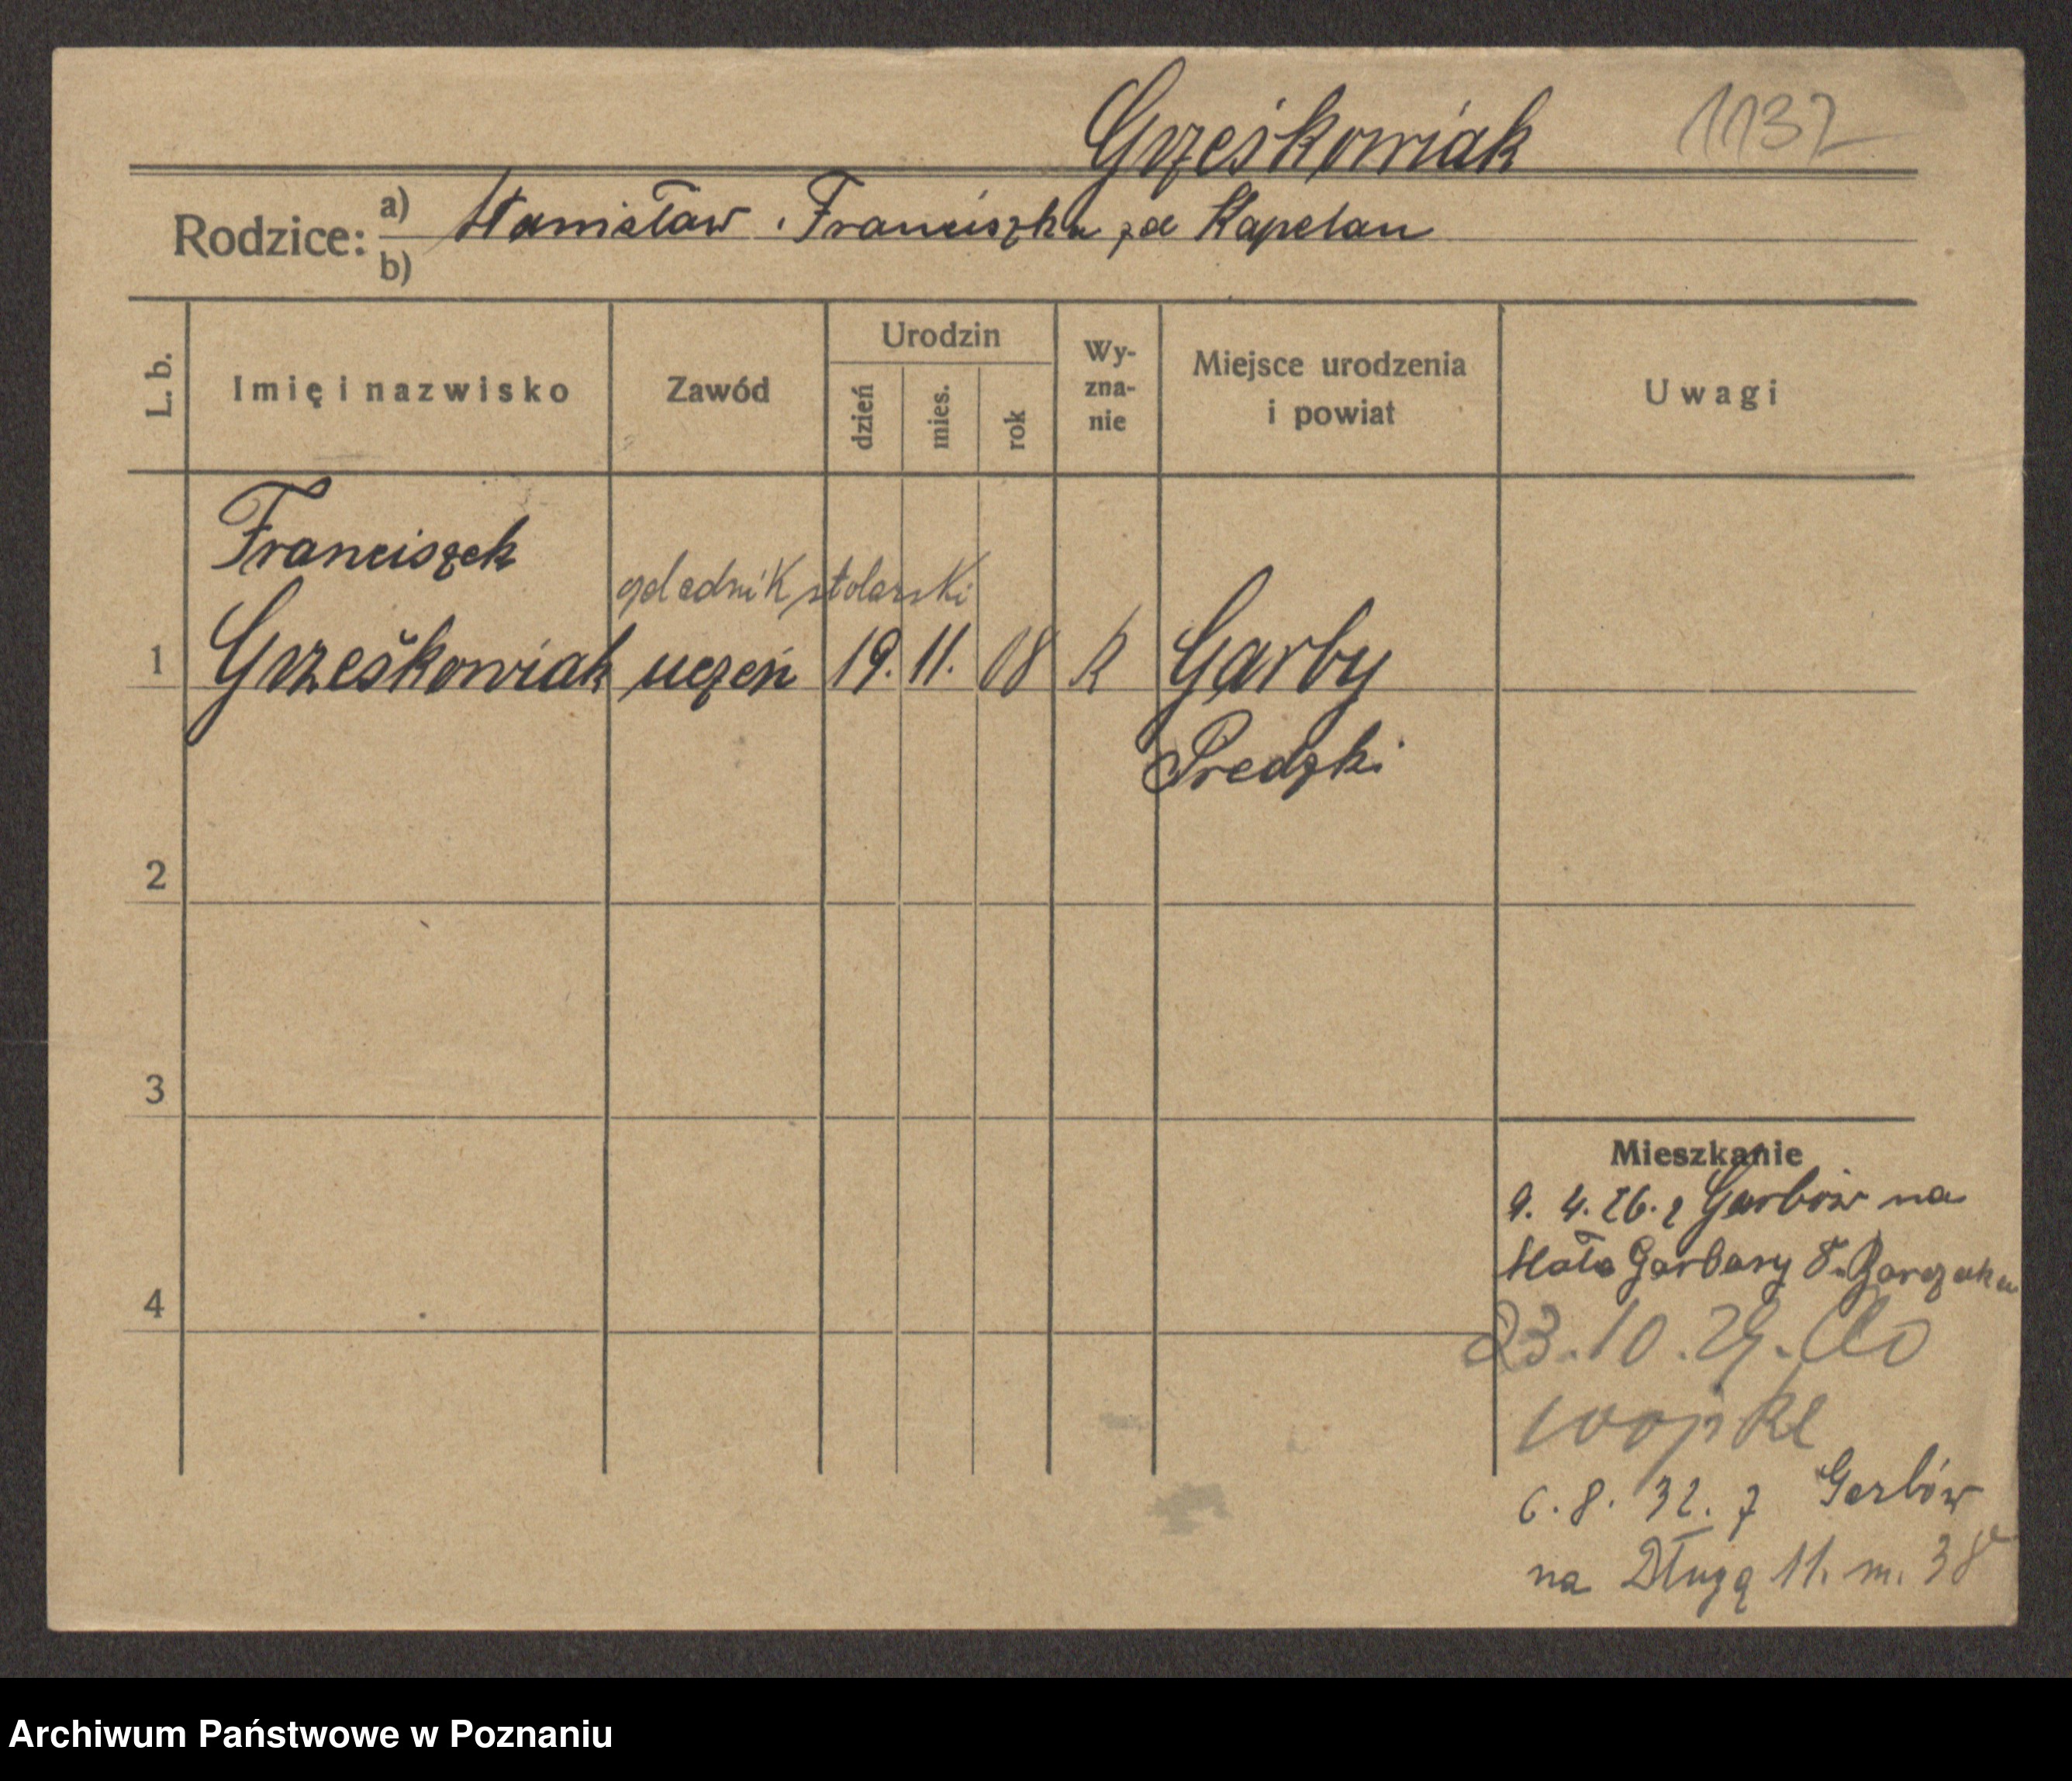 Grześkowiak 1132
Rodzice: a) Stanisław . Franciszka zd Kapelan
b)
L. b. Imię i nazwisko Zawód Urodzin dzień mies. rok Wy-zna-nie Miejsce urodzenia i powiat Uwagi
Franciszek
czeladnik stolarski
1 Grześkowiak uczeń 19. 11. 08 R Garby
Średzki
2
3
Mieszkanie
9. 4. 26. z Garbów na
Małe Garbary
4
23. 10. 29. do
wojska
6. 8. 32. z Garbów
na Długą 11. m. 38
Archiwum Państwowe w Poznaniu